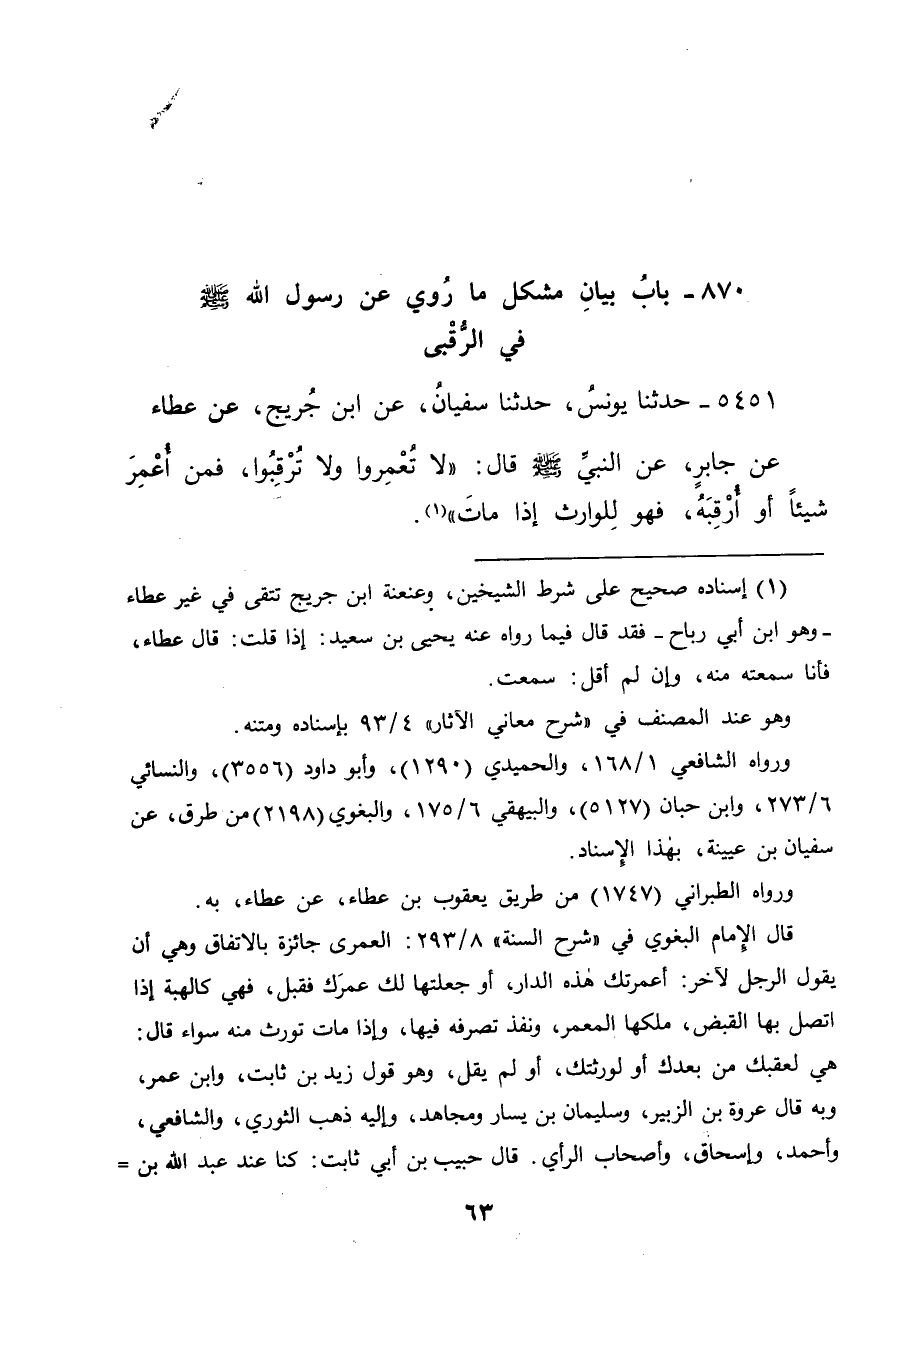 ٨٧٠ـ بابُ بيانِ مشكل ما رُوي عن رسول الله ﷺ
في الرُّقْبى
٥٤٥١ـ حدثنا يونسُ، حدثنا سفيانُ، عن ابن جُريج، عن عطاء
عن جابرٍ، عن النبيِّ ﷺ قال: «لا تُعْمِروا ولا تُرْقِبُوا، فمن أُعْمِرَ
شيئاً أو أُرْقِبَهُ، فهو لِلوارث إذا ماتَ»(١).
(١) إسناده صحيح على شرط الشيخين، وعنعنة ابن جريج تتقى في غير عطاء
ـ وهو ابن أبي رباح ـ فقد قال فيما رواه عنه يحيى بن سعيد: إذا قلت: قال عطاء،
فأنا سمعته منه، وإن لم أقل: سمعت.
وهو عند المصنف في «شرح معاني الآثار» ٩٣/٤ بإسناده ومتنه.
ورواه الشافعي ١٦٨/١، والحميدي (١٢٩٠)، وأبو داود (٣٥٥٦)، والنسائي
٢٧٣/٦، وابن حبان (٥١٢٧)، والبيهقي ١٧٥/٦، والبغوي (٢١٩٨) من طرق، عن
سفيان بن عيينة، بهٰذا الإسناد.
ورواه الطبراني (١٧٤٧) من طريق يعقوب بن عطاء، عن عطاء، به.
قال الإمام البغوي في «شرح السنة» ٢٩٣/٨: العمرى جائزة بالاتفاق وهي أن
يقول الرجل لآخر: أعمرتك هٰذه الدار، أو جعلتها لك عمرَك فقبل، فهي كالهبة إذا
اتصل بها القبض، ملكها المعمر، ونفذ تصرفه فيها، وإذا مات تورث منه سواء قال:
هي لعقبك من بعدك أو لورثتك، أو لم يقل، وهو قول زيد بن ثابت، وابن عمر،
وبه قال عروة بن الزبير، وسليمان بن يسار ومجاهد، وإليه ذهب الثوري، والشافعي،
وأحمد، وإسحاق، وأصحاب الرأي. قال حبيب بن أبي ثابت: كنا عند عبد الله بن =
٦٣